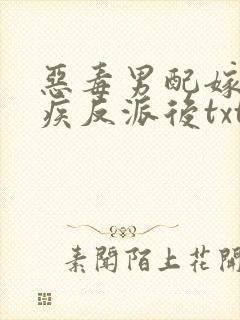 惡毒男配嫁
疾反派後txt
素聞陌上花開